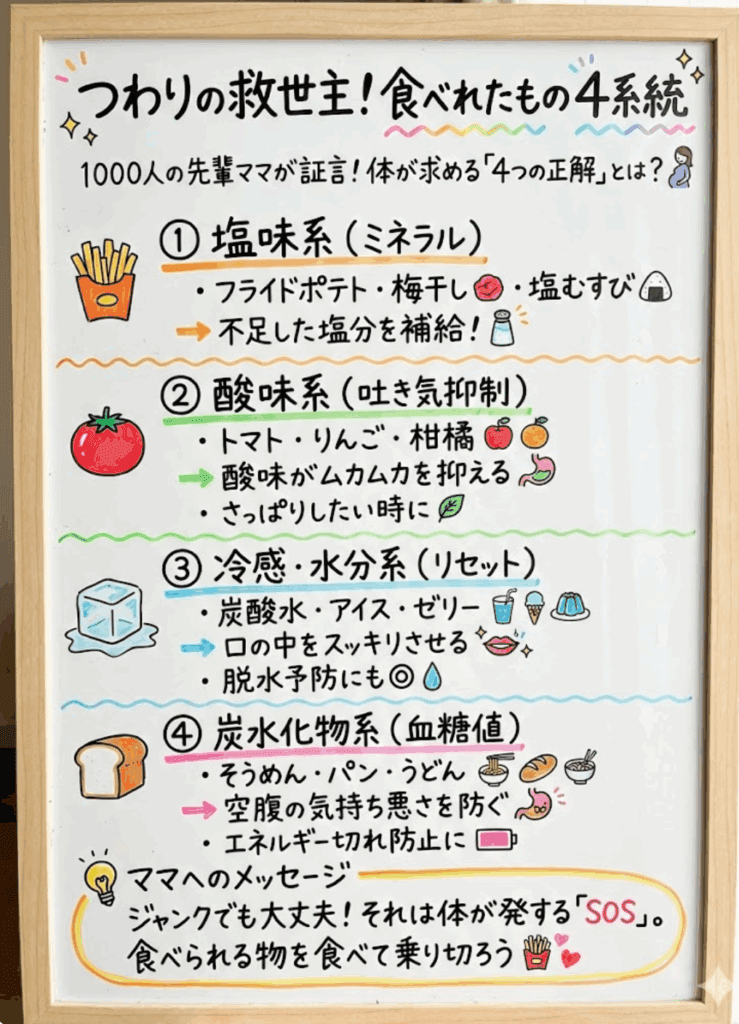 つわりの救世主！食べれたもの4系統
1000人の先輩ママが証言！体が求める「4つの正解」とは？
① 塩味系（ミネラル）
・フライドポテト・梅干し・塩むすび
→不足した塩分を補給！
② 酸味系（吐き気抑制）
・トマト・りんご・柑橘
→酸味がムカムカを抑える
・さっぱりしたい時に
③ 冷感・水分系（リセット）
・炭酸水・アイス・ゼリー
→口の中をスッキリさせる
・脱水予防にも◎
④ 炭水化物系（血糖値）
・そうめん・パン・うどん
→空腹の気持ち悪さを防ぐ
・エネルギー切れ防止に
ママへのメッセージ
ジャンクでも大丈夫！それは体が発する「SOS」。
食べられる物を食べて乗り切ろう